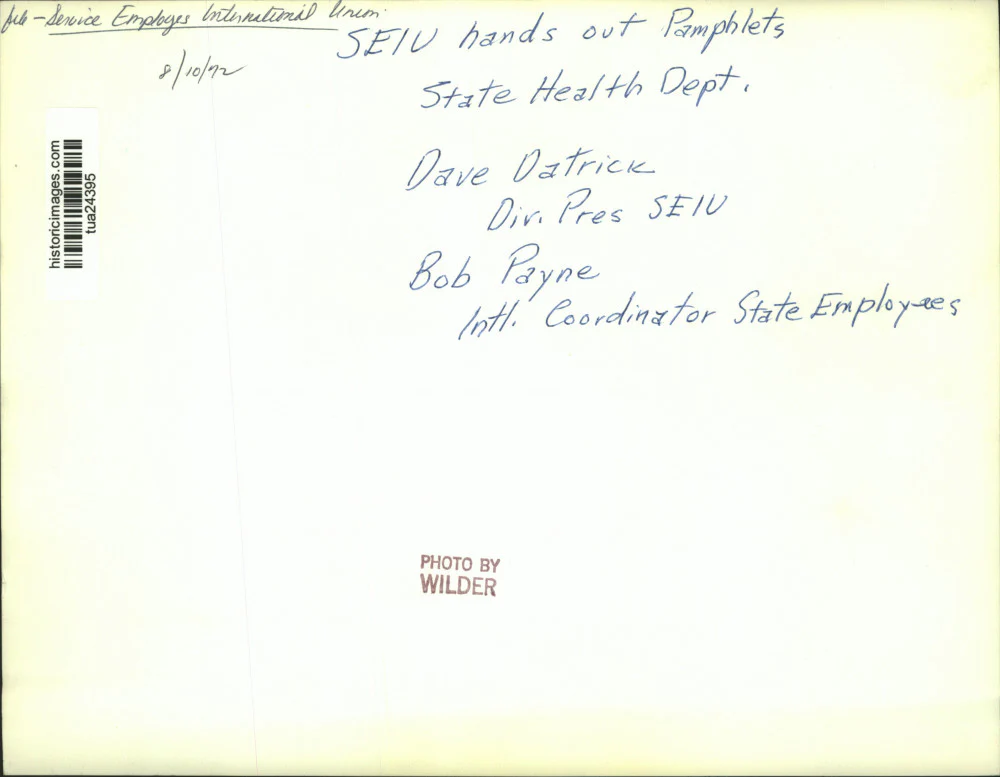 file - Service Employees International Union
8/10/72
SEIU hands out Pamphlets
State Health Dept.
Dave Datrick
Div. Pres SEIU
Bob Payne
Intl. Coordinator State Employees
historicimages.com
tua24395
PHOTO BY
WILDER